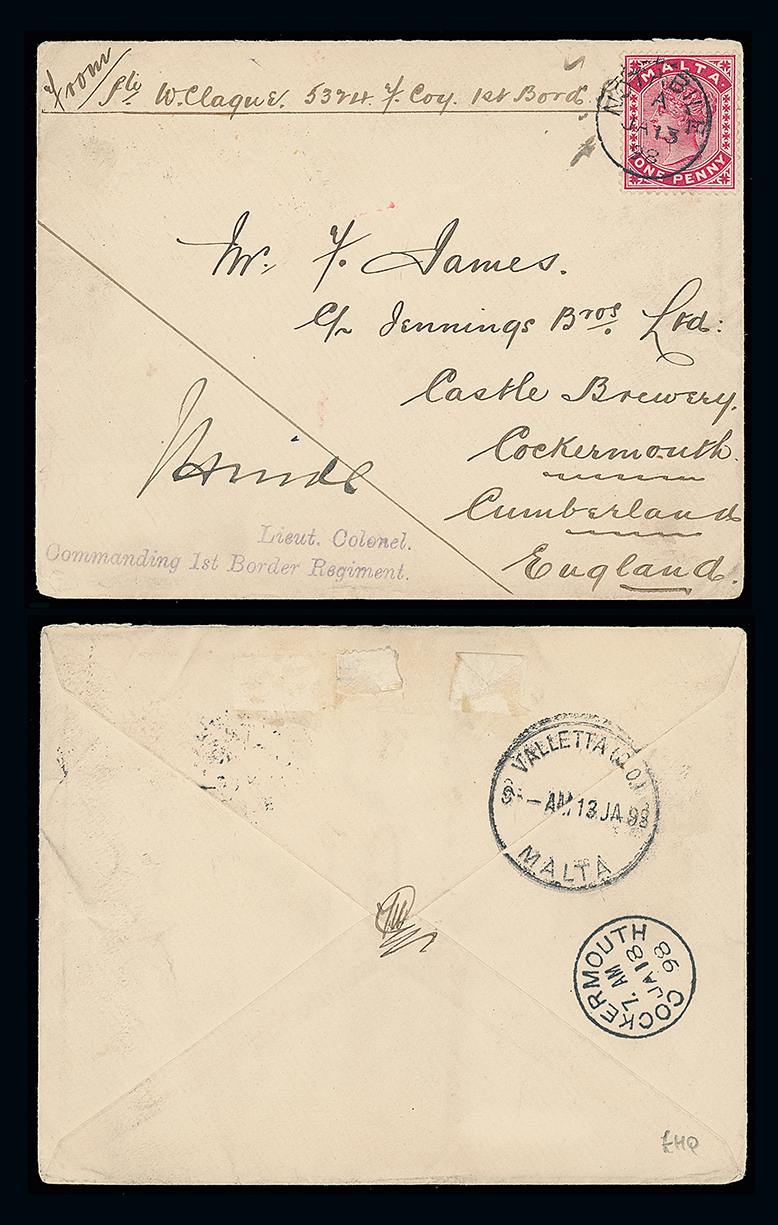 From
Pte W. Clague. 5324. F. Coy. 1st Bord.
MALTA.
ONE PENNY
A
JA 13
98
Mr. F. James.
C/o Jennings Bros. Ltd:
Castle Brewery.
Cockermouth.
Cumberland
England.
Lieut. Colonel.
Commanding 1st Border Regiment.
VALLETTA (G.O.)
AM 13 JA 98
MALTA
COCKERMOUTH
7. AM
JA 18
98